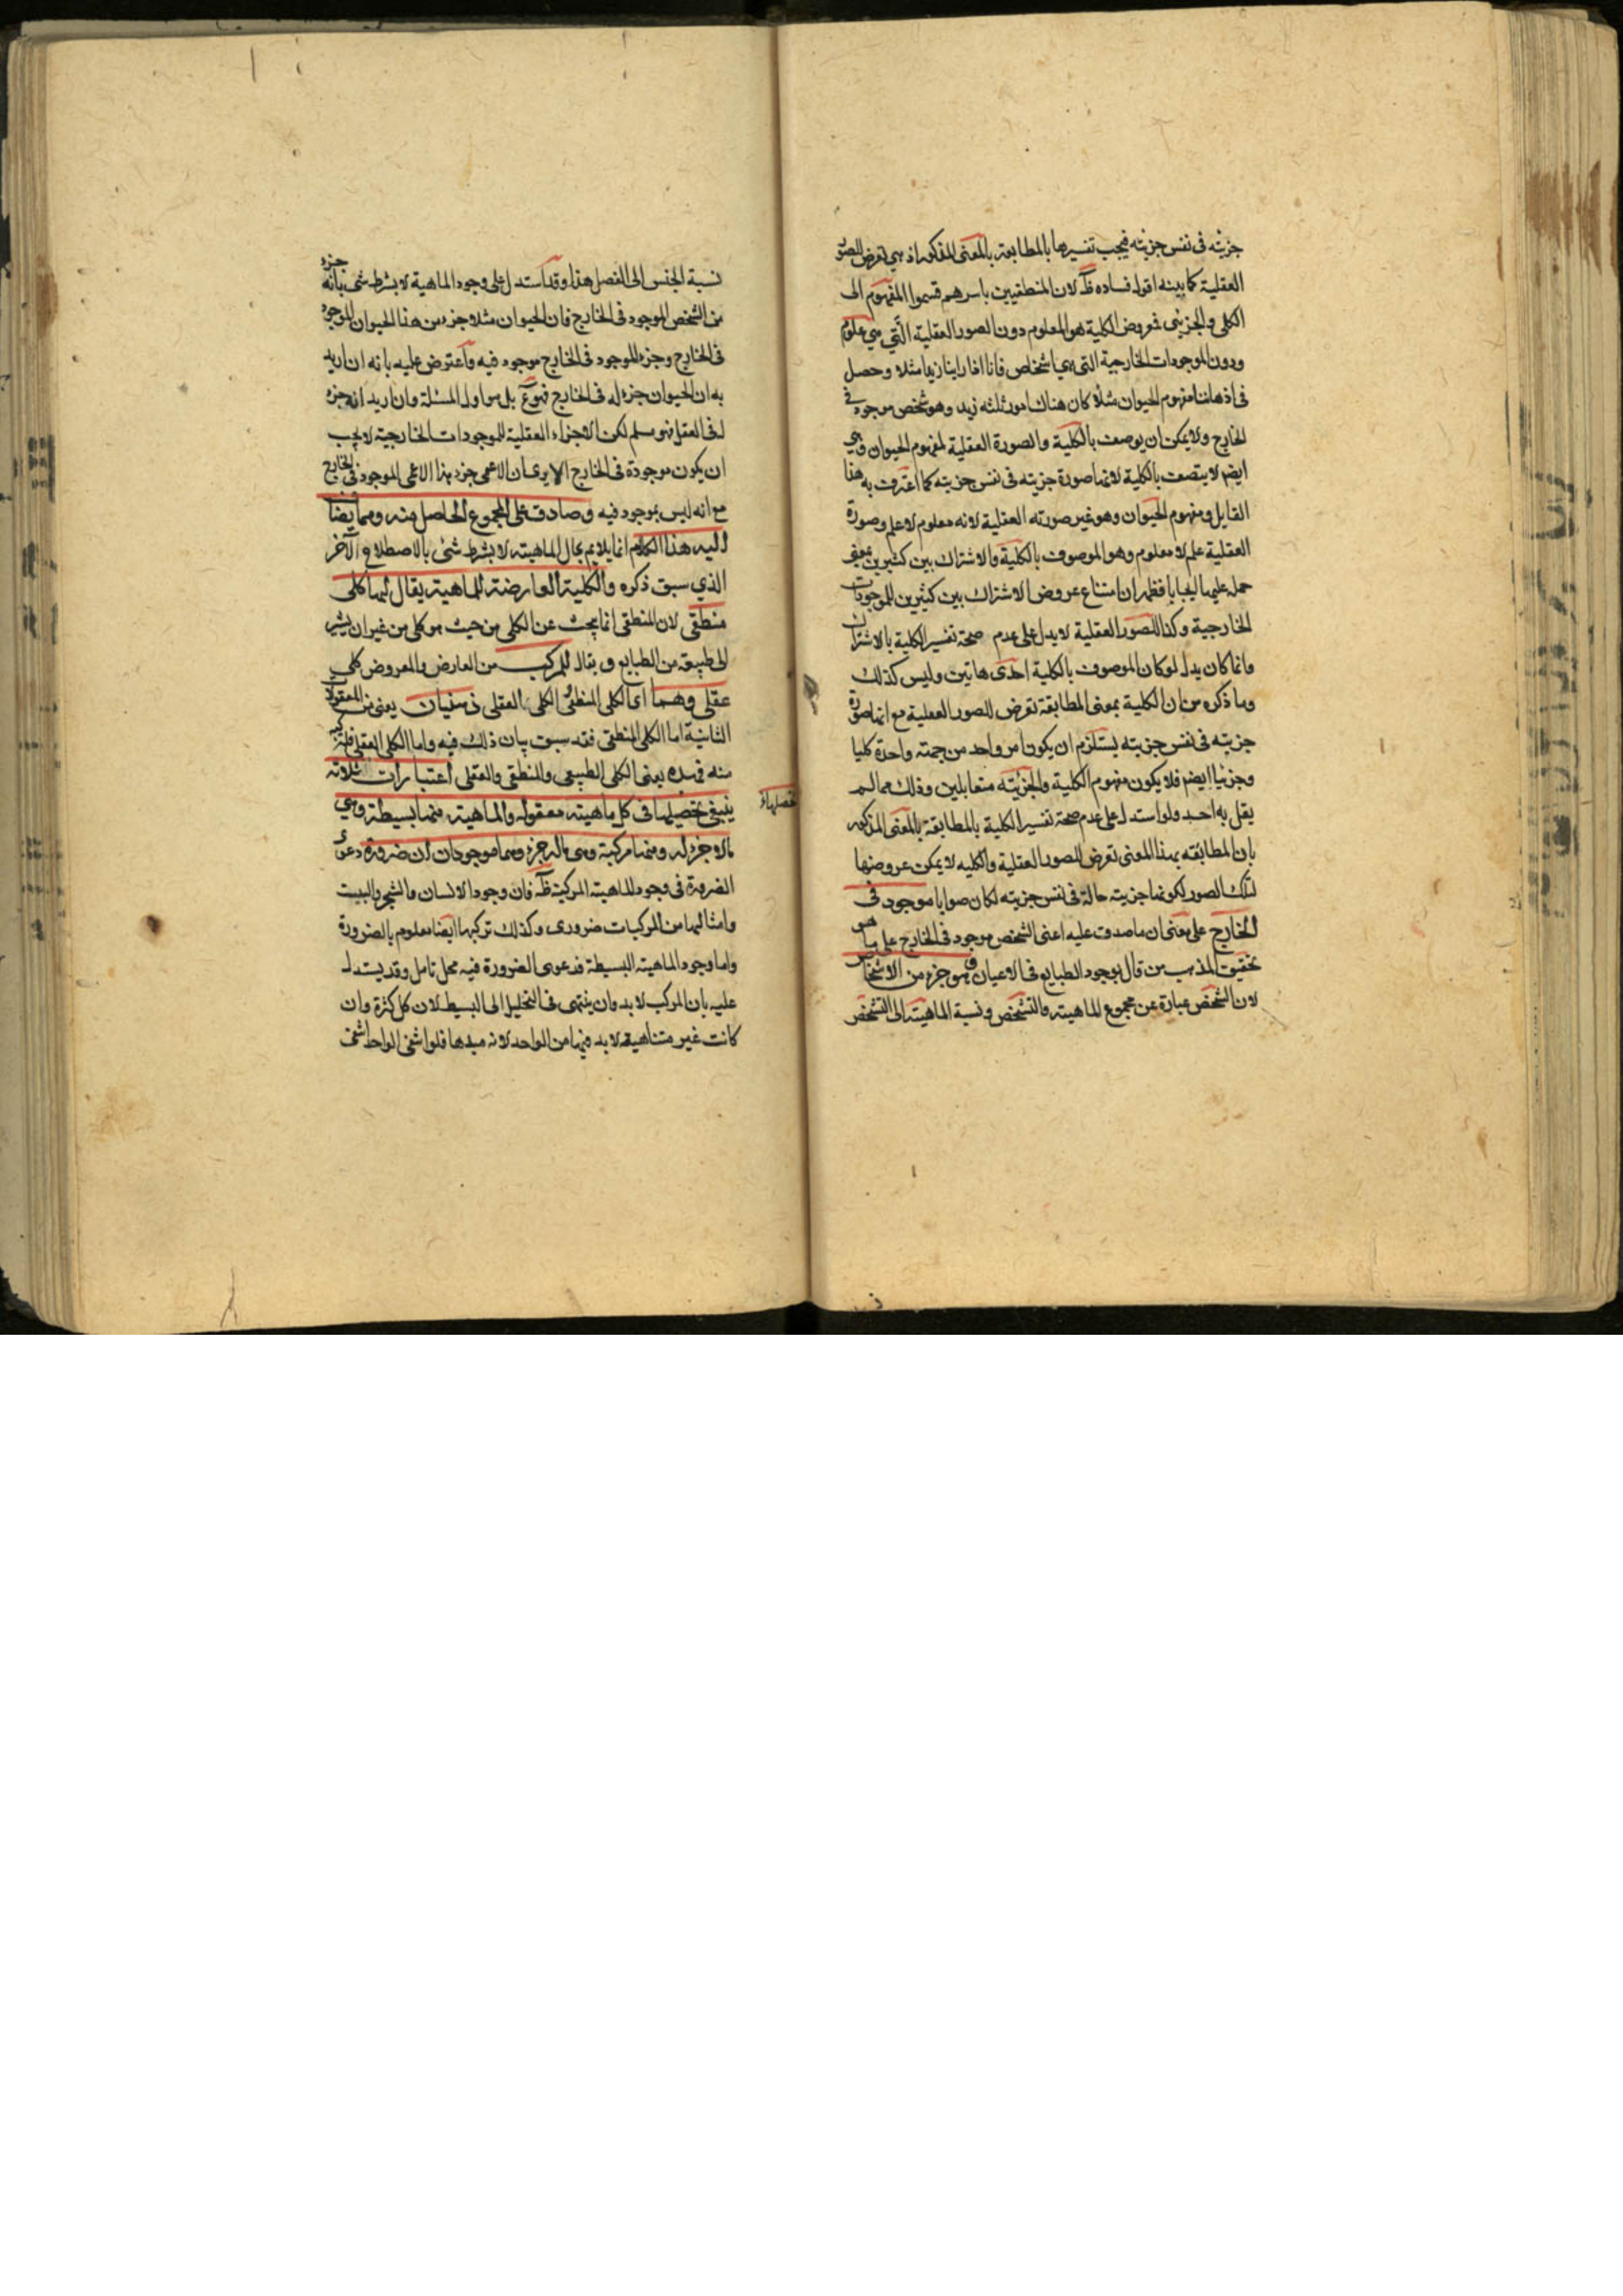 جزئية فى نفس جزئية فيجب تفسيرها بالمطابقة بالمعنى المذكور اذ هي تعرض للصور
العقلية كما بينه اقول فساده ظ لان المنطقيين باسرهم قسموا المفهوم الى
الكلى والجزئى فمعروض الكلية هو المعلوم دون الصور العقلية الّتي هي علوم
ودون الموجودات الخارجية التى هي اشخاص فانا اذا راينا زيدا مثلا وحصل
فى اذهاننا مفهوم الحيوان مثلا كان هناك امور ثلثه زيد وهو شخص موجود فى
الخارج ولا يمكن ان يوصف بالكلية والصورة العقلية لمفهوم الحيوان وهي
ايضم لا يتصف بالكلية لانها صورة جزئية فى نفس جزئية كما اعترف به هذا
القايل ومفهوم الحيوان وهو غير صورته العقلية لانه معلوم لا علم وصورة
العقلية علم لا معلوم وهو الموصوف بالكلية والاشتراك بين كثيرين بمعنى
حمله عليها ايجابا فظهر ان امتناع عروض الاشتراك بين كثيرين للموجودات
الخارجية وكذا للصور العقلية لا يدل على عدم صحة تفسير الكلية بالاشتراك
وانما كان يدل لو كان الموصوف بالكلية احدى هاتين وليس كذلك
وما ذكره من ان الكلية بمعنى المطابقة تعرض للصور العقلية مع انها صورة
جزئية فى نفس جزئية يستلزم ان يكون امر واحد من جهة واحدة كليا
وجزئيا ايضم فلا يكون مفهوم الكلية والجزئية متقابلين وذلك مما لم
يقل به احد ولو استدل على عدم صحة تفسير الكلية بالمطابقة بالمعنى المذكور
بان المطابقة بهذا المعنى تعرض للصور العقلية والكلية لا يمكن عروضها
لتلك الصور لكونها جزئية حالة فى نفس جزئية لكان صوابا موجود فى
الخارج على معنى ان ما صدق عليه اعنى الشخص موجود فى الخارج على ما هو
تحقيق المذهب من قال بوجود الطبايع فى الاعيان وهو جزء من الاشخاص
لان الشخص عبارة عن مجموع الماهية والتشخص ونسبة الماهية الى التشخص
نسبة الجنس الى الفصل هذا وقد استدل على وجود الماهية لا بشرط شئ بانه جزء
من الشخص الموجود فى الخارج فان الحيوان مثلا جزء من هذا الحيوان الموجود
فى الخارج وجزء الموجود فى الخارج موجود فيه واعترض عليه بانه ان اريد
به ان الحيوان جزء له فى الخارج فهو مع بل هو اول المسئلة وان اريد انه جزء
له فى العقل فهو مسلم لكن الاجزاء العقلية للموجودات الخارجية لا يجب
ان يكون موجودة فى الخارج الا يرى ان الاعمى جزء هذا الاعمى الموجود فى الخارج
مع انه ليس بموجود فيه وصادق على المجموع الحاصل منه ومما يضاف
اليه هذا الكلام انما يلايم بحال الماهية لا بشرط شئ بالاصطلاح الآخر
الذي سبق ذكره والكلية العارضة للماهية يقال لها كلى
منطقى لان المنطقى انما يبحث عن الكلى من حيث هو كلى من غير ان يشير
الى طبيعة من الطبايع ويقال للمركب من العارض والمعروض كلى
عقلى وهما اى الكلى المنطقى الكلى العقلى ذهنيان يعنى من المعقولات
الثانية اما الكلى المنطقى فقد سبق بيان ذلك فيه واما الكلى العقلى فلتركبه
منه فهذه يعنى الكلى الطبيعى والمنطقى والعقلى اعتبارات ثلاثة
ينبغى تحصيلها فى كل ماهية معقولة والماهية منها بسيطة وهي
ما لا جزء له ومنها مركبة وهى ما له جزء وهما موجودتان ضرورة دعوى
الضرورة فى وجود الماهية المركبة ظ فان وجود الانسان والشجر والبيت
وامثالها من المركبات ضرورى وكذلك تركبها ايضا معلوم بالضرورة
واما وجود الماهية البسيطة فدعوى الضرورة فيه محل تامل وقد يستدل
عليه بان المركب لا بد وان ينتهى فى التحليل الى البسيط لان كل كثرة وان
كانت غير متناهية لا بد فيها من الواحد لانه مبدها فلو انتفى الواحد انتفى